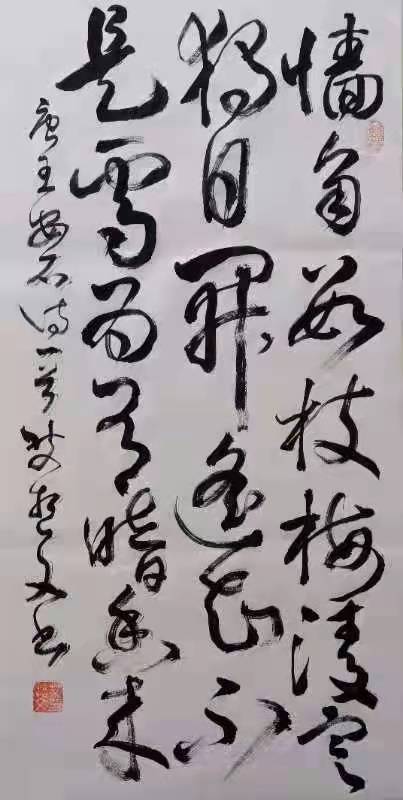 墙角数枝梅凌寒
独自开遥知不
是雪为有暗香来
唐王安石诗一首 文书